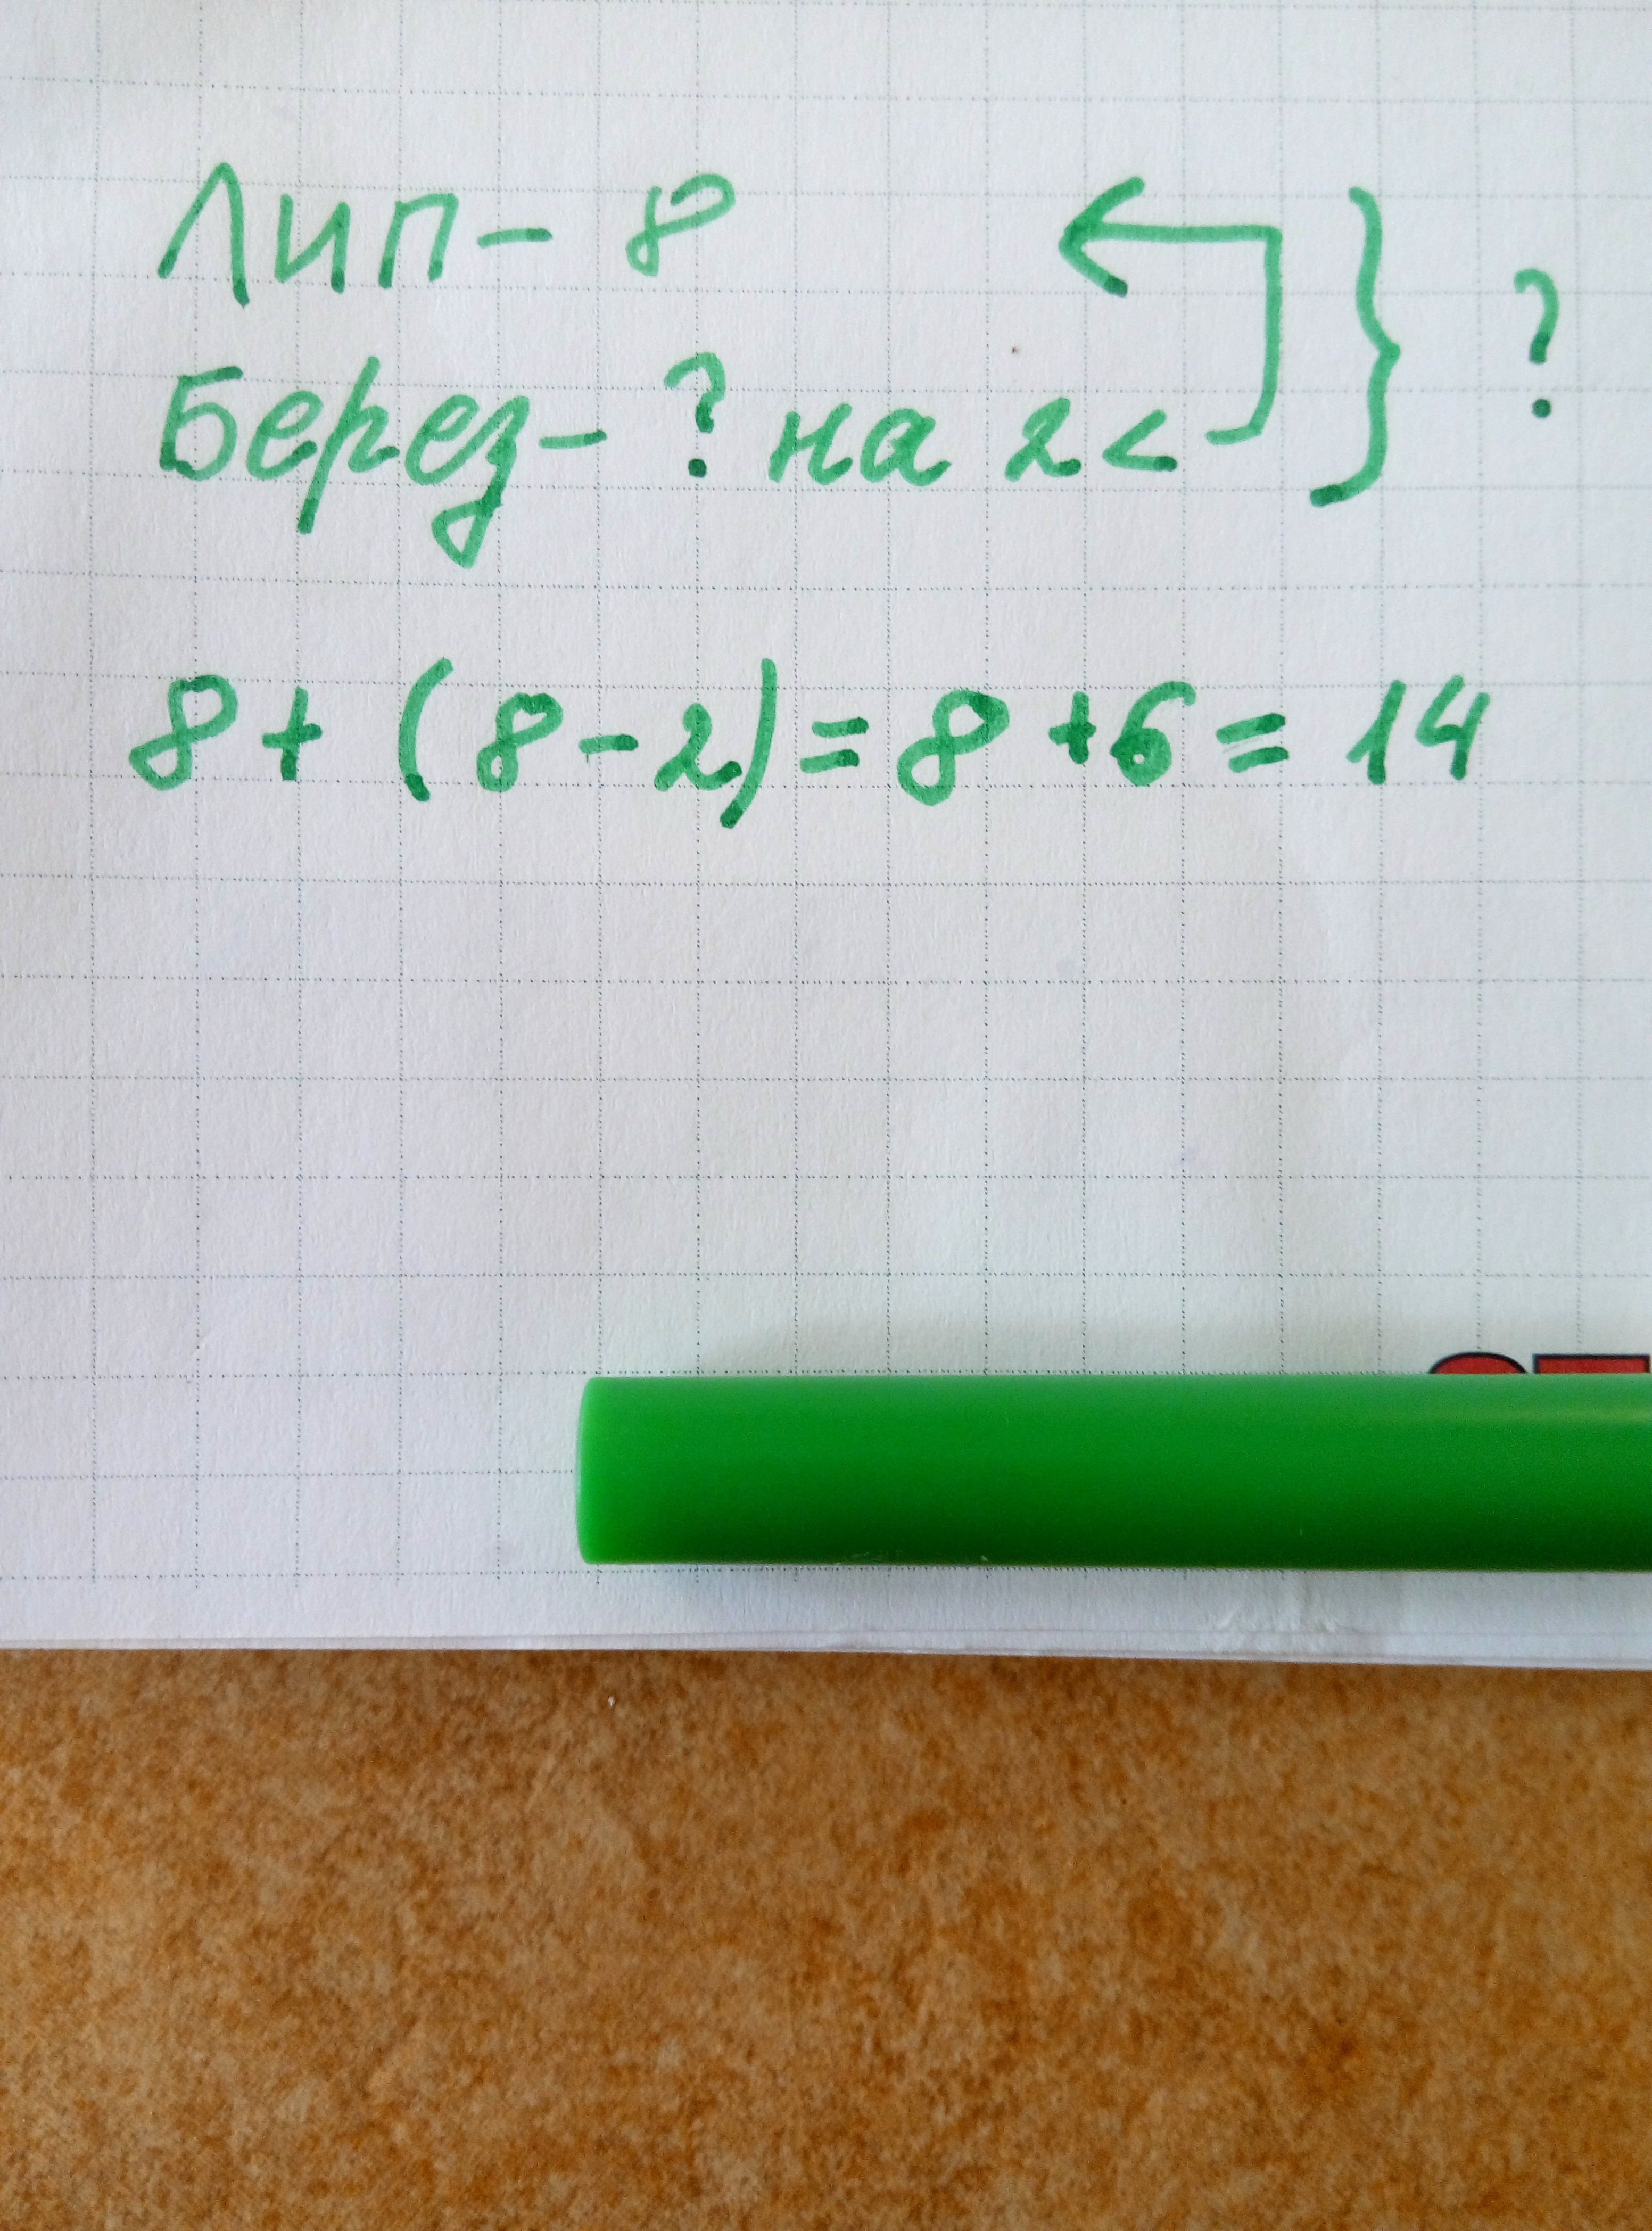 Лип - 8 } ?
Берез - ? на 2 <
8 + (8 - 2) = 8 + 6 = 14